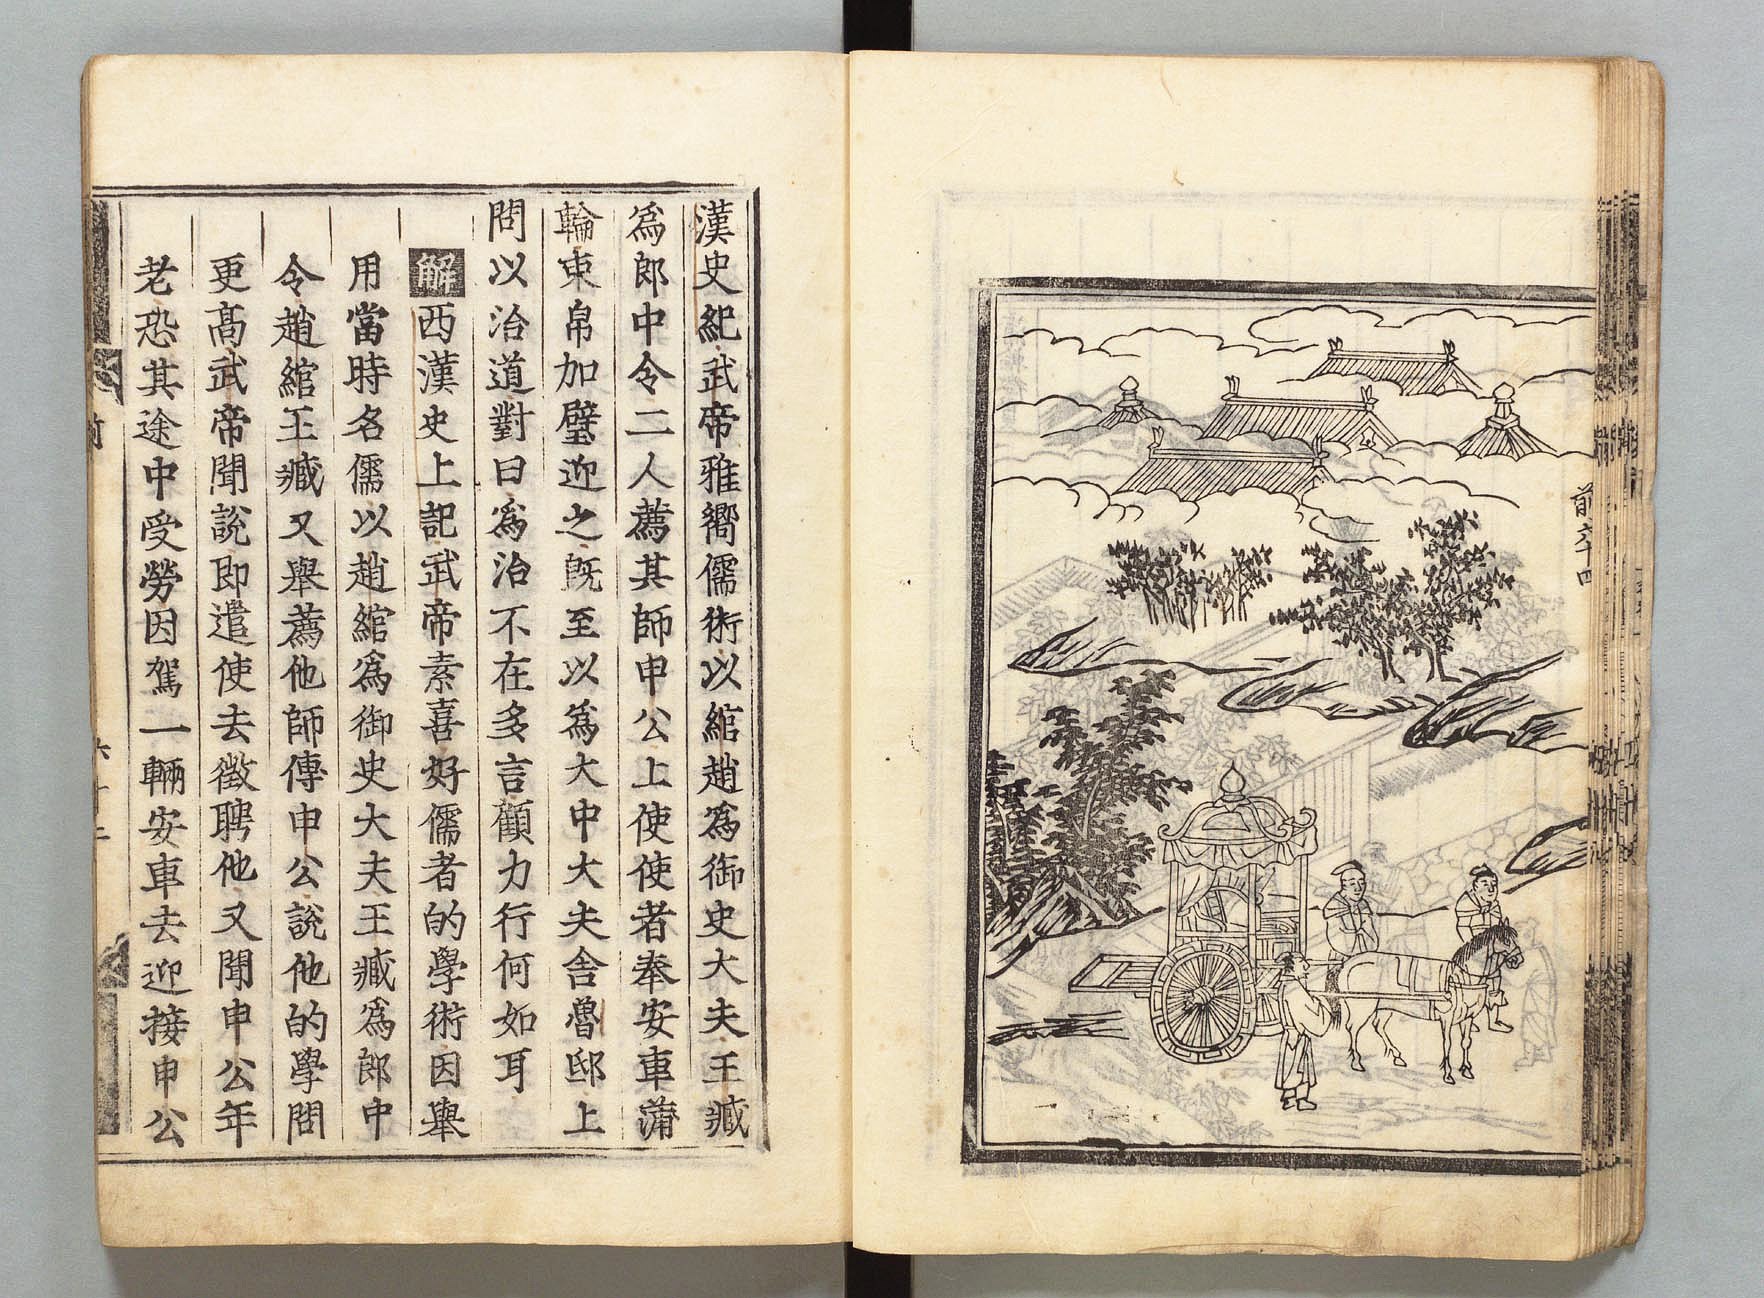 前六十四
漢史紀武帝雅嚮儒術以綰趙爲御史大夫王臧
爲郎中令二人薦其師申公上使使者奉安車蒲
輪束帛加璧迎之旣至以爲大中大夫舍魯邸上
問以治道對曰爲治不在多言顧力行何如耳
解西漢史上記武帝素喜好儒者的學術因舉
用當時名儒以趙綰爲御史大夫王臧爲郎中
令趙綰王臧又舉薦他師傅申公說他的學問
更高武帝聞說即遣使去徵聘他又聞申公年
老恐其途中受勞因駕一輛安車去迎接申公